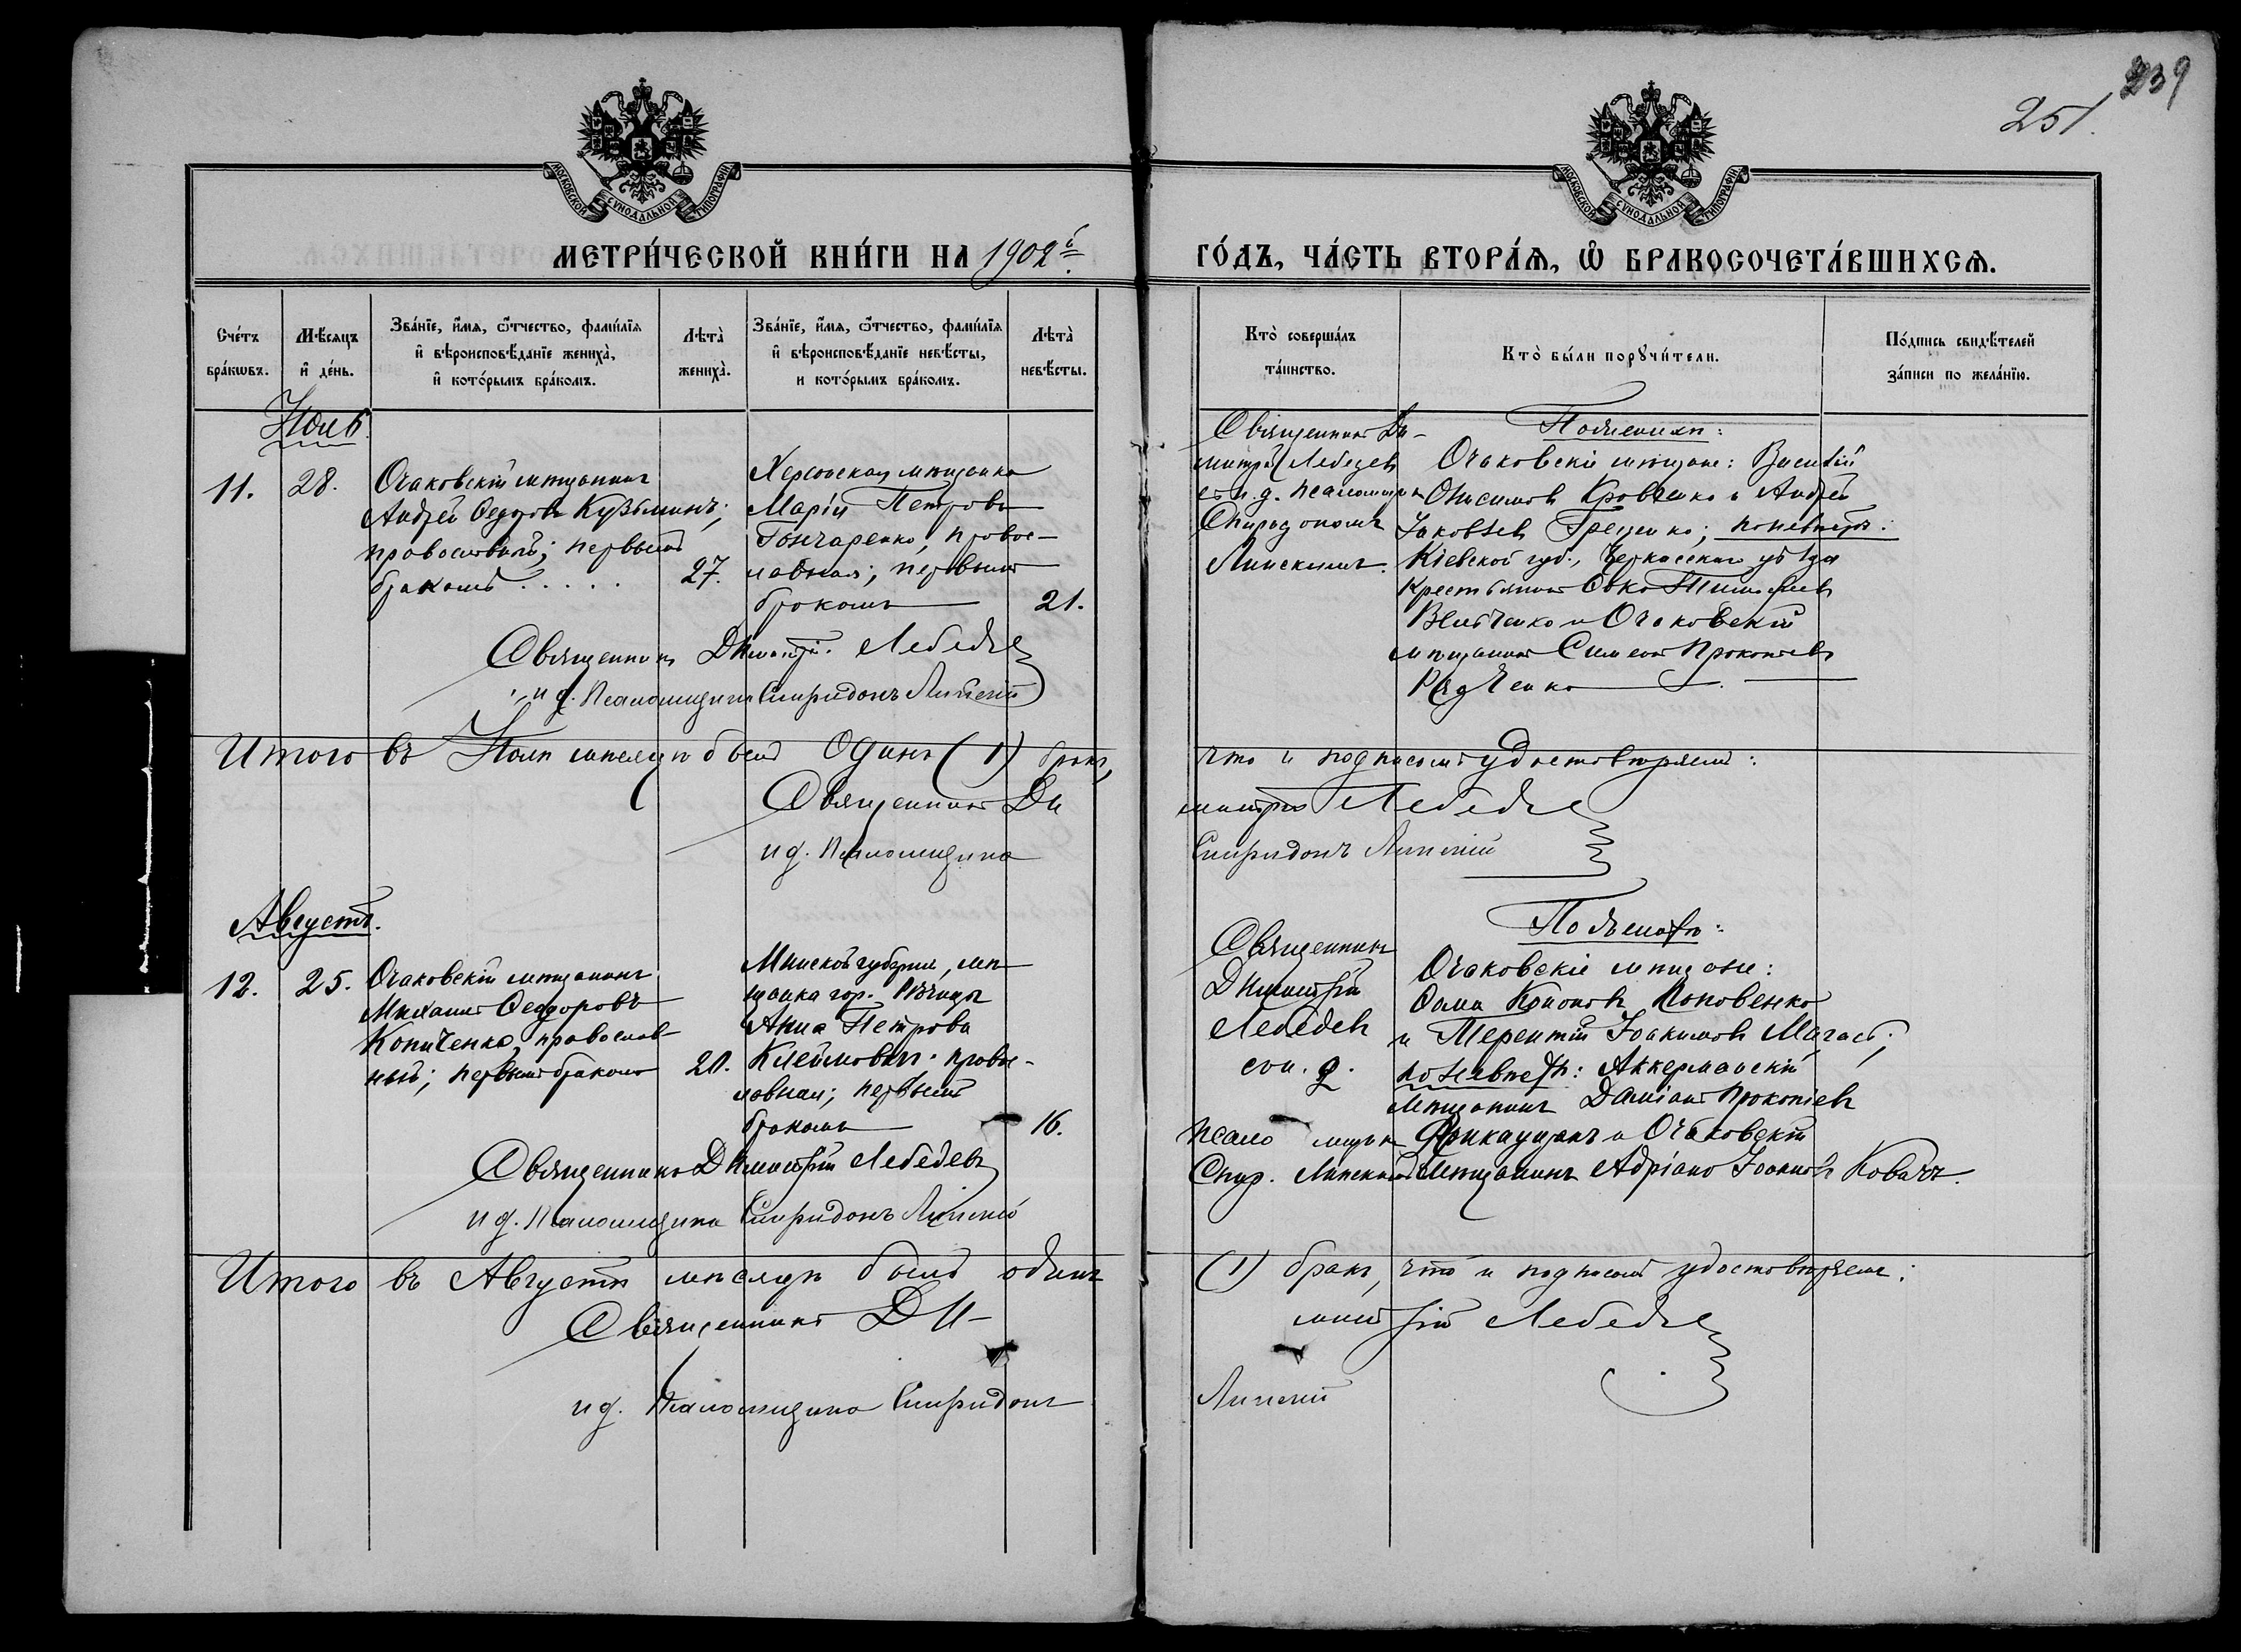 239
251.
МОСКОВСКОЙ СУНОДАЛЬНОЙ ТИПОГРАФІИ
МОСКОВСКОЙ СУНОДАЛЬНОЙ ТИПОГРАФІИ
МЕТРИ́ЧЕСКОЙ КНИ́ГИ НА 1902й
ГО́ДЪ, ЧА́СТЬ ВТОРА́Я, Ѽ БРАКОСОЧЕТА́ВШИХСѦ.
Сче́тъ
бра́кѡвъ.
Мѣ́сяцъ
и҆ де́нь.
Зва́нїе, и҆́мѧ, ѻ҆́тчество, фами́лїѧ
и҆ вѣроисповѣ́данїе жениха̀,
и҆ кото́рымъ бра́комъ.
Лѣта̀
жениха̀.
Зва́нїе, и҆́мѧ, ѻ҆́тчество, фами́лїѧ
и҆ вѣроисповѣ́данїе невѣ́сты,
и кото́рымъ бра́комъ.
Лѣта̀
невѣ́сты.
Кто̀ соверша́лъ
та́инство.
Кто̀ бы́ли порꙋчи́тели.
По́дпись свидѣ́телей
за́писи по жела́нїю.
Іюль
11.
28.
Очаковскій мѣщанинъ
Андрей Ѳедоровъ Кузьминъ;
православный; первымъ
бракомъ . . . . .
27.
Херсонская мѣщанка
Марія Петрова
Гончаренко, правос-
лавная; первымъ
бракомъ
21.
Священникъ Ди-
митрій Лебедевъ
съ и. д. псаломщика
Спиридономъ
Липскимъ.
По женихѣ:
Очаковскіе мѣщане: Василій
Онисимовъ Кровченко и Андрей
Іаковлевъ Греценко; по невѣстѣ:
Кіевской губ., Черкасскаго уѣзда
крестьянинъ Савва
и Очаковскій
мѣщанинъ Симеонъ Прокопіевъ
Радченко
Священникъ Димитрій Лебедевъ
и д. Псаломщика Спиридонъ Липскій
Итого въ Іюлѣ мѣсяцѣ былъ одинъ (1) бракъ,
что и подписомъ удостовѣряемъ:
Священникъ Ди
митрій Лебедевъ
и д. Псаломщика
Спиридонъ Липскій
Августъ.
12.
25.
Очаковскій мѣщанинъ
Михаилъ Ѳеодоровъ
Копиченко, православ
ный; первымъ бракомъ
20.
Минской губерніи, мѣ
щанка гор. Рѣчицы
Анна Петрова
Клеймовичъ; правос-
лавная; первымъ
бракомъ
16.
Священникъ
Димитрій
Лебедевъ
съ и. д.
псало мщика
Спир. Липскимъ
По женихѣ:
Очаковскіе мѣщане:
Ѳома Кононовъ Коновенко
и Терентій Іоакимовъ Магасъ;
по невѣстѣ: Аккерманскій
мѣщанинъ Даміанъ Прокопіевъ
и Очаковскій
мѣщанинъ Адріанъ Іоанновъ Ковачъ.
Священникъ Димитрій Лебедевъ
и д. Псаломщика Спиридонъ Липскій
Итого въ Августѣ мѣсяцѣ былъ одинъ
(1) бракъ, что и подписомъ удостовѣряемъ:
Священникъ Ди-
митрій Лебедевъ
и д. Псаломщика Спиридонъ
Липскій